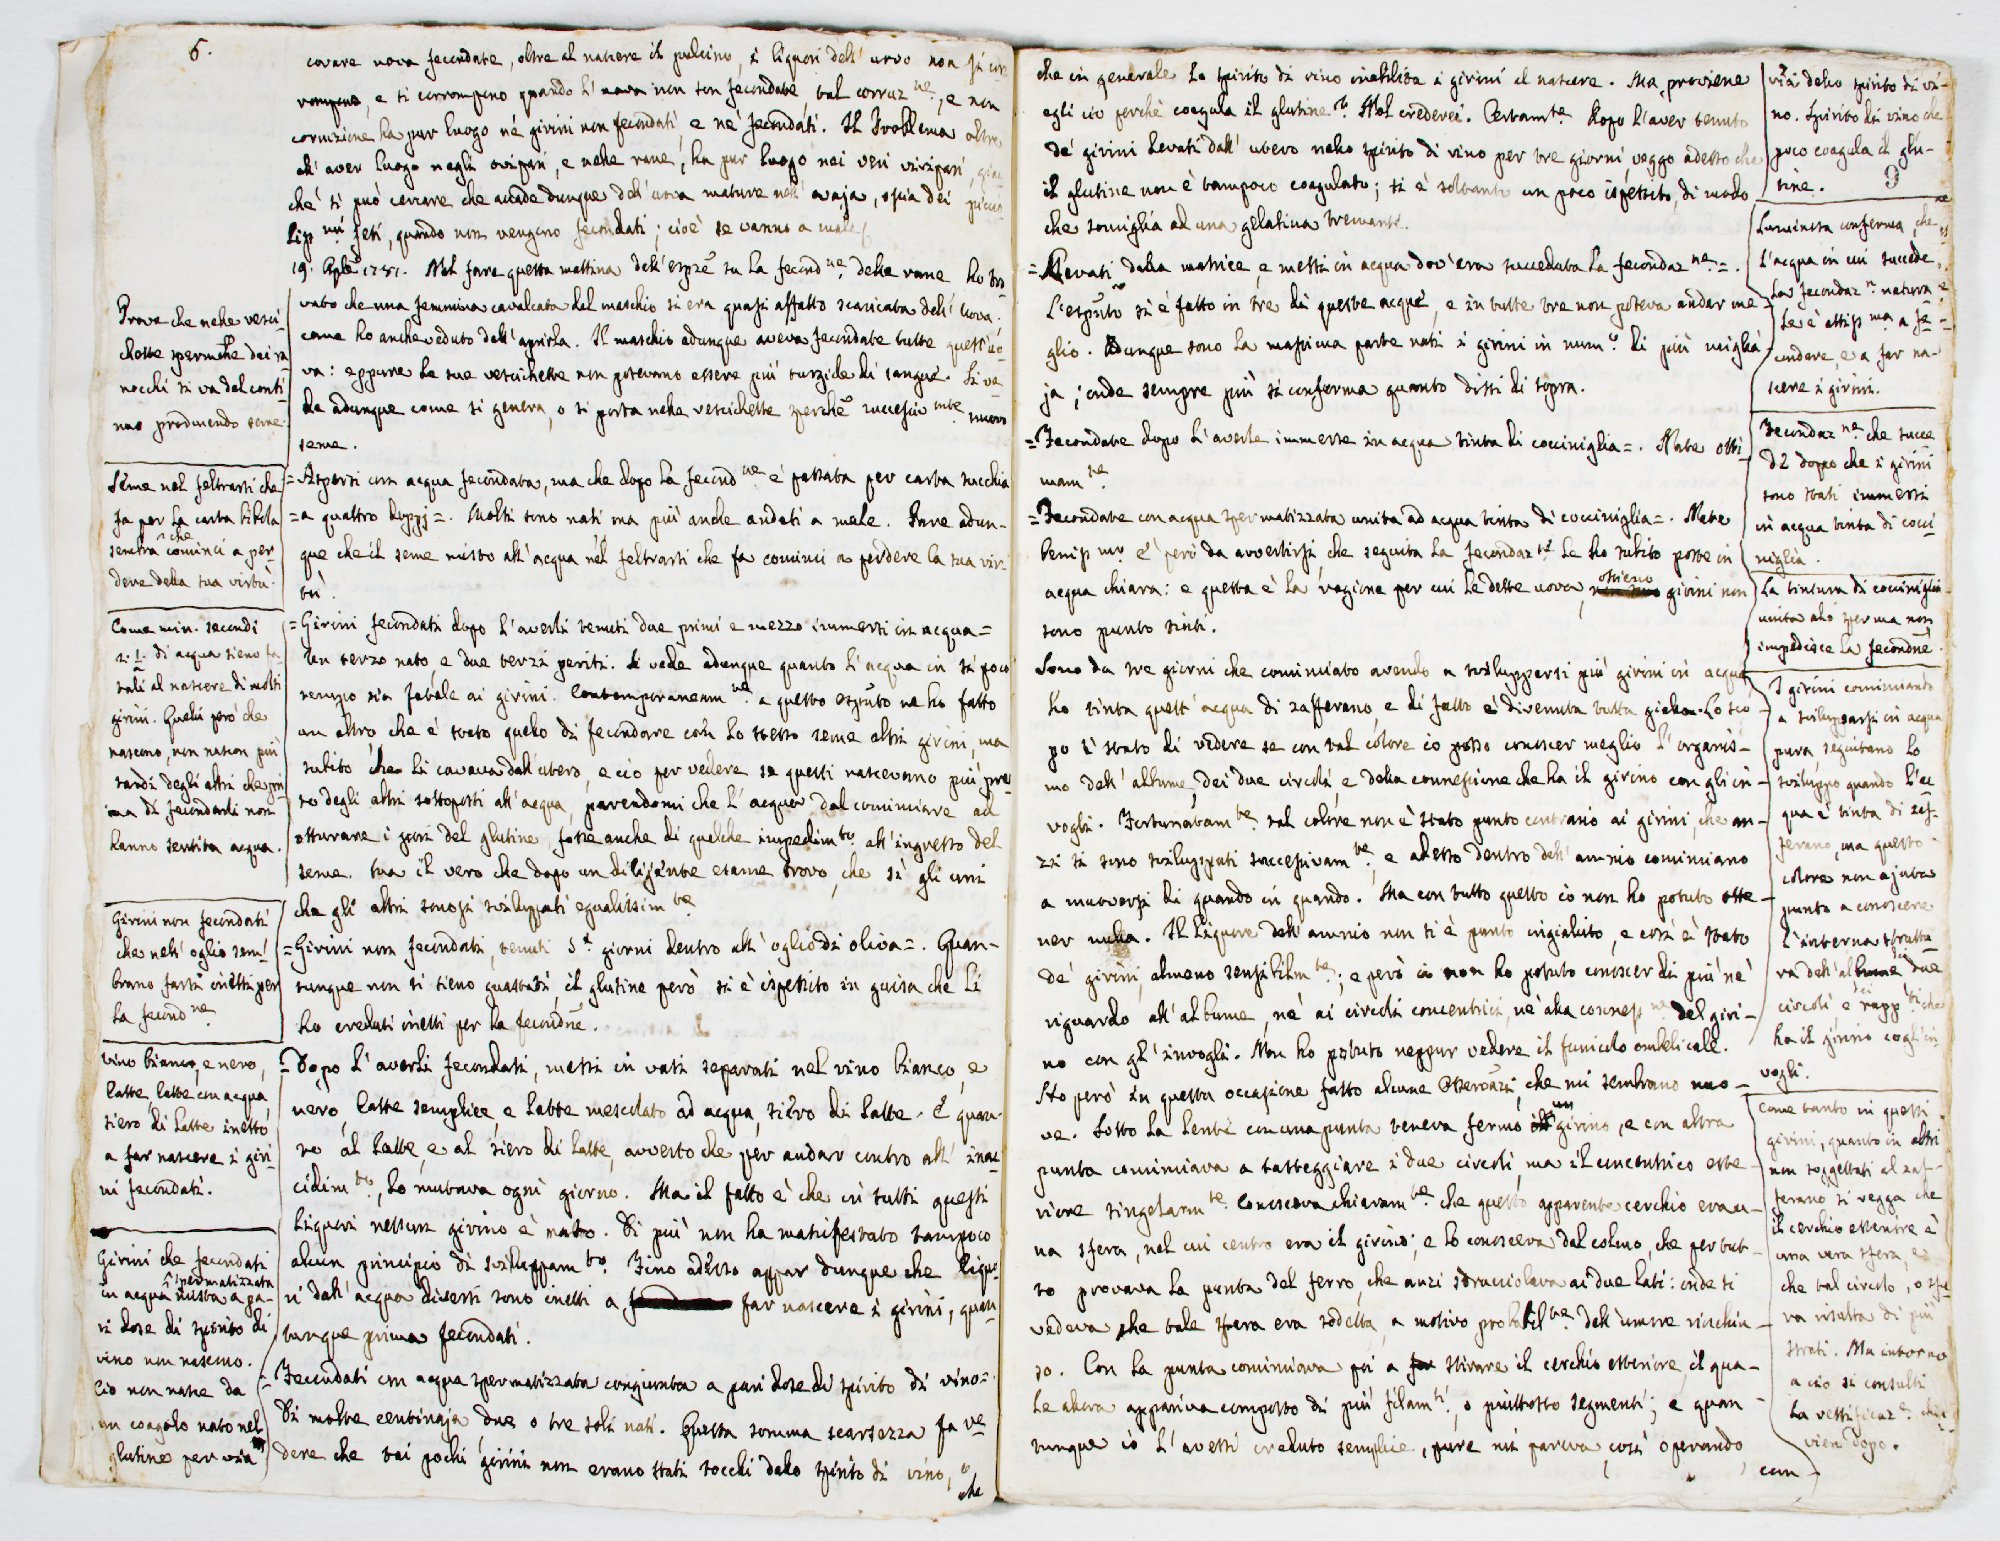 6.
covare uova fecondate, oltre al nascere il pulcino, i liquori dell' uovo non si cor
rompono, e si corrompono quando l' uova non son fecondate, tal corruz.ne, e non
coruzione ha pur luogo né girini non fecondati e né fecondati. Il Problema oltre
all' aver luogo negli ovipari, e nelle rane, ha pur luogo nei veri vivipari, giac
ché si può cercare che accade dunque dell' uova mature nell' ovaja, ossia dei piccio
lissmi feti, quando non vengono fecondati; cioè se vanno a male
19. Aple 1781. Nel fare questa mattina dell' esprẽ su la fecondne. delle rane ho tro
vato che una femmina cavalcata dal maschio si era quasi affatto scaricata dell' uova.
come ho anche veduto dall' aprirla. Il maschio adunque aveva fecondate tutte quest' uo
va: eppure le sue vescichette non potevano essere più turgide di sangue. Si ve
de adunque come si genera, o si porta nelle vescichette perchè successivmte. nuovo
seme.
Prova che nelle vesci
chette spermche dei ra
nocchi si va del conti
nuo producendo seme.
= Aspersi con acqua fecondata, ma che dopo la fecondne è passata per carta succhia
= a quattro doppj =. Molti sono nati ma più anche andati a male. Pare adun-
que che il seme misto all' acqua nel feltrarsi che fa cominci a perdere la sua vir
tù.
Seme nel feltrarsi che
fa per la carta bibola
sembra che cominci a per
dere della sua virtù.
= Girini fecondati dopo l' averli tenuti due primi e mezzo immersi in acqua =
Un terzo nato e due terzi periti. Si vede adunque quanto l' acqua in sì poco
tempo sia fatale ai girini. Contemporaneamte. a questo esprito ne ho fatto
un altro che è stato quello di fecondare con lo stesso seme altri girini, ma
subito che li cavava dall' utero, e ciò per vedere se questi nascevano più pre
sto degli altri sottoposti all' acqua, parendomi che l' acqua dal cominciare ad
otturare i pori del glutine fosse anche di qualche impedimto. all' ingresso del
seme. Ma il vero che dopo un diligente esame trovo, che sì gli uni
che gli altri sonosi sviluppati egualissimte.
Come min. secondi
2. 1/2. di acqua sieno fa-
tali al nascere di molti
girini. Quelli però che
nascono, non nascon più
tardi degli altri che pri
ma di fecondarli non
hanno sentita acqua.
= Girini non fecondati, tenuti 5 giorni dentro all' oglio di oliva =. Quan-
tunque non si sieno guastati, il glutine però si è ispessito in guisa che li
ho creduti inetti per la fecondne.
Girini non fecondati
che nell' oglio sem
brano farsi inetti per
la fecondne.
= Dopo l' averli fecondati, messi in vasi separati nel vino bianco, e
nero, latte semplice, e latte mescolato ad acqua, siero di latte. E quan-
to al latte, e al siero di latte, avverto che per andar contro all' inac
cidimto., lo mutava ogni giorno. Ma il fatto è che in tutti questi
liquori nessun girino è nato. Di più non ha manifestato tampoco
alcun principio di sviluppamto. Fino adesso appar dunque che liquo
ri dall' acqua diversi sono inetti a far nascere i girini, quan
tunque prima fecondati.
Vino bianco, e nero,
latte, latte con acqua
siero di latte inetto
a far nascere i giri-
ni fecondati.
= Fecondati con acqua spermatizzata congiunta a pari dose di spirito di vino =.
Di molte centinaja due o tre soli nati. Questa somma scarsezza fa ve
dere che tai pochi girini non erano stati tocchi dallo spirito di vino, o
che
Girini che fecondati
in acqua spermatizzata mista a pa-
ri dose di spirito di
vino non nascono.
Ciò non nasce da
un coagolo nato nel
glutine per via
che in generale lo spirito di vino inabilita i girini al nascere. Ma proviene
egli ciò perchè coagula il glutine? Nol crederei. Certamte. dopo l' aver tenuto
de' girini levati dall' utero nello spirito di vino per tre giorni veggo adesso che
il glutine non è tampoco coagulato; si è soltanto un poco ispessito, di modo
che somiglia ad una gelatina tremante.
via dello spirito di vi-
no. Spirito di vino che
poco coagula il glu-
tine.
9
= Levati dalla matrice, e messi in acqua dov' era succeduta la fecondazne =.
L' espruto si è fatto in tre di queste acque, e in tutte tre non poteva andar me
glio. Adunque sono la massima parte nati i girini in numo. di più miglia
ja; onde sempre più si conferma quanto dissi di sopra.
Luminosa conferma, che
l' acqua in cui succede
la fecondazn. natura
le è attissma a fe
condare, e a far na-
scere i girini.
= Fecondate dopo l' averle immerse in acqua tinta di cocciniglia =. Nate otti
mamte
Fecondazne. che succe
de dopo che i girini
sono stati immersi
in acqua tinta di cocci
niglia.
= Fecondate con acqua spermatizzata unita ad acqua tinta di cocciniglia =. Nate
benissmo. E' però da avvertirsi, che seguita la fecondazne le ho subito poste in
acqua chiara: e questa è la ragione per cui le dette uova, ossieno girini non
sono punto tinti.
La tintura di cocciniglia
unita allo sperma non
impedisce la fecondne.
Sono da tre giorni che cominciato avendo a svilupparsi più girini in acqua
ho tinta quest' acqua di zafferano, e di fatto è divenuta tutta gialla. Lo sco
po è stato di vedere se con tal colore io posso conoscer meglio l' organis-
mo dell' albume, dei due circoli, e della connessione che ha il girino con gli in-
vogli. Fortunatamte. tal colore non è stato punto contrario ai girini, che an-
zi si sono sviluppati successivamte. e adesso dentro dell' amnio cominciano
a muoversi di quando in quando. Ma con tutto questo io non ho potuto otte-
ner nulla. Il liquore dell' amnio non si è punto ingialito, e così è stato
de' girini, almeno sensibilmte.; e però io non ho potuto conoscer di più nè
riguardo all' albume, nè ai circoli concentrici, nè alla connessne del giri-
no con gl' invogli. Non ho potuto neppur vedere il funicolo ombelicale.
I girini cominciando
a svilupparsi in acqua
pura, seguitano lo
sviluppo quando l' ac
qua è tinta di zaf-
ferano, ma questo
colore non ajuta
punto a conoscere
l' interna struttu
ra dell' albume dei due
circoli e i rappti. che
ha il girino cogl' in-
vogli.
Ho però in questa occasione fatto alcune Osservazni, che mi sembrano nuo-
ve. Sotto la lente con una punta teneva fermo un girino, e con altra
punta cominciava a tasteggiare i due circoli, ma il concentrico este-
riore singolarmte. Conosceva chiaramte. che questo apparente cerchio era u-
na sfera, nel cui centro era il girino; e lo conosceva dal colmo, che per tut-
to provava la punta del ferro, che anzi sdrucciolava ai due lati: onde si
vedeva che tale sfera era soddetta, a motivo probabilte. dell' umore rinchiu-
so. Con la punta cominciava poi a stirare il cerchio esteriore, il qua-
le allora appariva composto di più filamti, o piuttosto segmenti; e quan
tunque io l' avessi creduto semplice, pure mi pareva, così operando,
con-
Come tanto in questi
girini, quanto in altri
non soggettati al zaf-
ferano si vegga che
il cerchio esteriore è
una vera sfera, e
che tal circolo, o sfe
ra risulta di più
strati. Ma intorno
a ciò si consulti
la rettificaze. che
vien dopo.